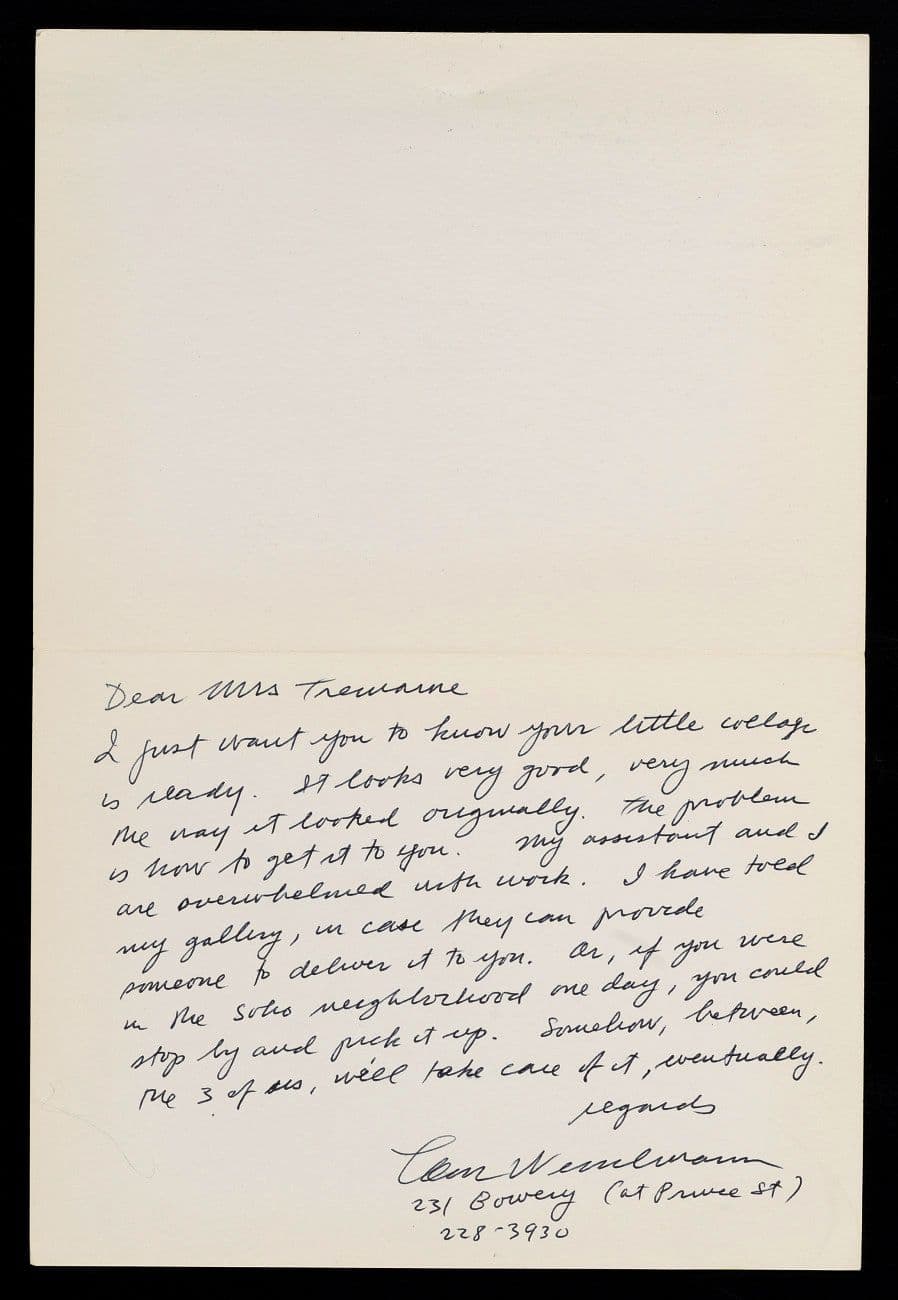 Dear Mrs Tremaine
I just want you to know your little collage
is ready. It looks very good, very much
the way it looked originally. The problem
is how to get it to you. My assistant and I
are overwhelmed with work. I have told
my gallery, in case they can provide
someone to deliver it to you. Or, if you were
in the Soho neighborhood one day, you could
stop by and pick it up. Somehow, between,
the 3 of us, we'll take care of it, eventually.
regards
Tom Wesselmann
231 Bowery (at Prince St)
228-3930